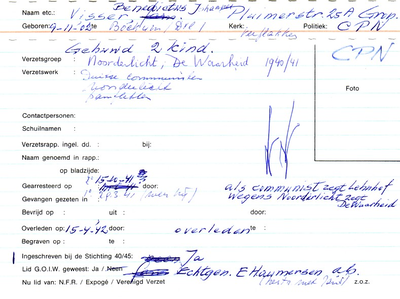 Benedictus J.
Naam etc.: Visser, Pluimerstr 25A Gron.
Geboren: 9-11-02 te Bochum, Dld Kerk: Politiek: CPN
Gehuwd 2 kind. CPN
Verzetsgroep : Noorderlicht, De Waarheid 1940/41
Verzetswerk : Duitse communisten
pamfletten
Foto
Contactpersonen:
Schuilnaam :
Verzetsrapp. ingel. dd. : bij:
Naam genoemd in rapp.:
op bladzijde:
15-10-41
Gearresteerd op door: als communist zegt
Gevangen gezeten in wegens Noorderlicht zegt
De Waarheid
Bevrijd op : uit : door:
Overleden op : 15-4-42 door: overleden
Begraven op : te :
Ingeschreven bij de Stichting 40/45: Ja
Lid G.O.I.W. geweest: Ja / Neen Echtgen. E Haumersen
Nu lid van: N.F.R. / Expogé / Verenigd Verzet z.o.z.